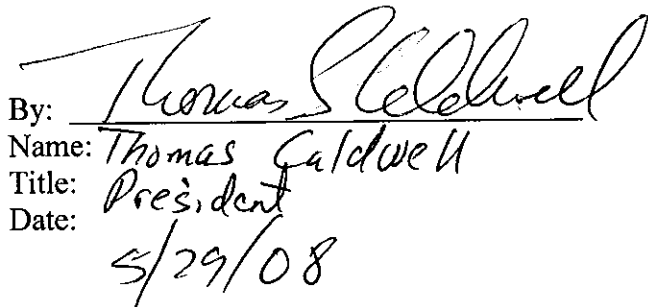 By: Thomas S Caldwell
Name: Thomas Caldwell
Title: President
Date:
5/29/08